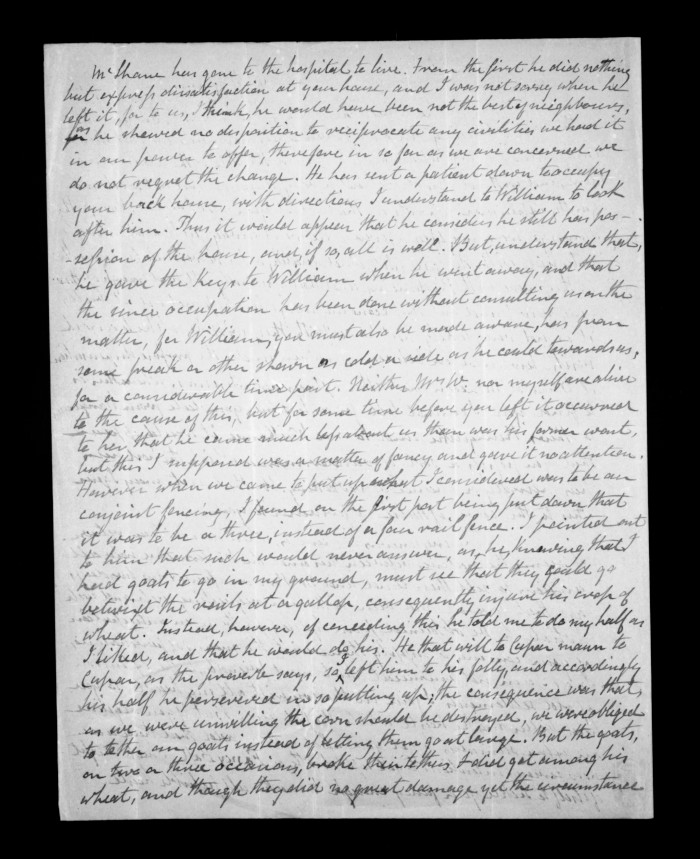 Mr Shane has gone to the hospital to live. From the first he did nothing
but express dissatisfaction at your house, and I was not sorry when he
left it, for to us, I think, he would have been not the best of neighbours,
as he shewed no disposition to reciprocate any civilities we had it
in our power to offer, therefore in so far as we are concerned we
do not regret the change. He has sent a patient down to occupy
your back house, with directions I understand to William to look
after him. Thus it would appear that he considers he still has pos-
-session of the house, and, if so, all is well. But, understand that,
he gave the keys to William when he went away, and that
the since occupation has been done without consulting us on the
matter, for William, you must also be made aware, has from
some freak or other shown as cold a side as he could towards us,
for a considerable time past. Neither Mrs W. nor myself are alive
to the cause of this, but for some time before you left it occurred
to her that he came much less about us than was his former wont,
but this I supposed was a matter of fancy and gave it no attention.
However when we came to put up what I considered was to be our
conjoint fencing, I found on the first part being put down that
it was to be a three, instead of a four rail fence. I pointed out
to him that such would never answer, as, he knowing that I
had goats to go in my ground, must see that they could go
betwixt the rails at a gallop, consequently injure his crop of
wheat. Instead, however, of conceding this he told me to do my half as
I liked, and that he would do his. He that will to Cupar maun to
Cupar, as the proverb says, so I left him to his folly, and accordingly
his half he persevered in so putting up; the consequence was that,
as we were unwilling the corn should be destroyed, we were obliged
to tether our goats instead of letting them go at large. But the goats,
on two or three occasions, broke their tethers & did get among his
wheat, and though they did no great damage yet the circumstance